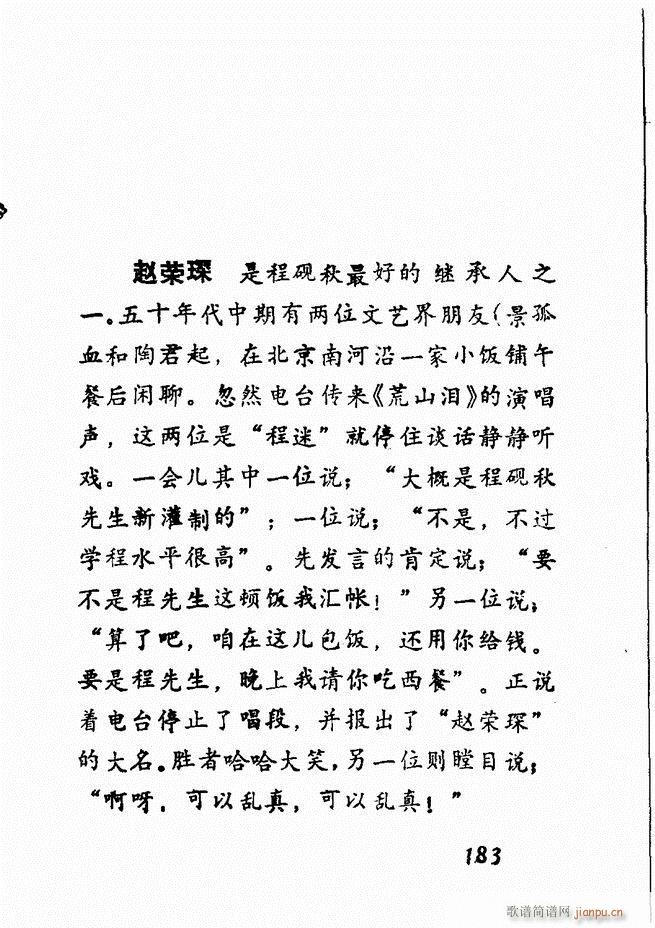 赵荣琛 是程砚秋最好的继承人之
一。五十年代中期有两位文艺界朋友(景孤
血和陶君起，在北京南河沿一家小饭铺午
餐后闲聊。忽然电台传来《荒山泪》的演唱
声，这两位是“程迷”就停住谈话静静听
戏。一会儿其中一位说；“大概是程砚秋
先生新灌制的”；一位说；“不是，不过
学程水平很高”。先发言的肯定说；“要
不是程先生这顿饭我汇帐！”另一位说；
“算了吧，咱在这儿包饭，还用你给钱。
要是程先生，晚上我请你吃西餐”。正说
着电台停止了唱段，并报出了“赵荣琛”
的大名。胜者哈哈大笑，另一位则瞠目说；
“啊呀，可以乱真，可以乱真！”
183
歌谱简谱网 jianpu.cn